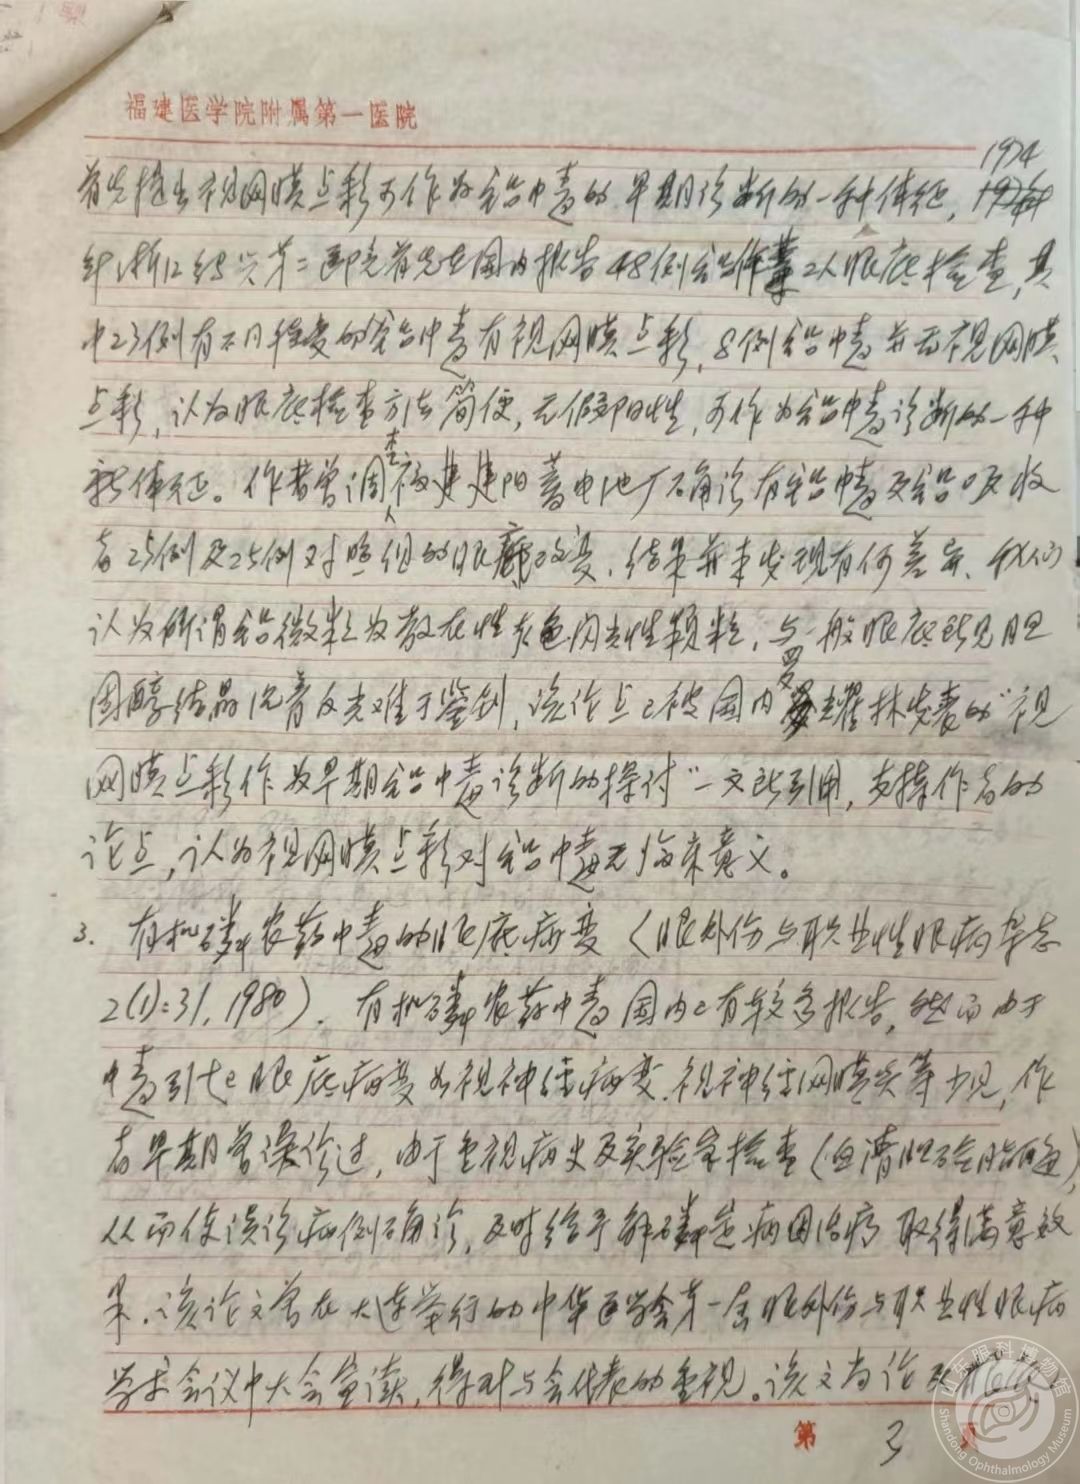 福建医学院附属第一医院
1974
首先提出视网膜点彩可作为铅中毒的早期诊断的一种体征,
浙江绍兴第二医院首先在国内报告48例铅作业工人眼底检查,其
中23例有不同程度的铅中毒有视网膜点彩,8例铅中毒并无视网膜
点彩,认为眼底检查方法简便,无假阳性,可作为铅中毒诊断的一种
新体征。作者曾调查福建建阳蓄电池厂确诊有铅中毒及铅吸收
者25例及25例对照组的眼底改变,结果并未发现有何差异、我们
认为所谓铅微粒为散在性灰色闪光性颗粒,与一般眼底所见胆
固醇结晶沉着反光难于鉴别,该论点已被国内罗耀林发表的"视
网膜点彩作为早期铅中毒诊断的探讨"一文所引用,支持作者的
论点,认为视网膜点彩对铅中毒无临床意义。
3. 有机磷农药中毒的眼底病变(眼外伤与职业性眼病杂志
2(1):31,1980). 有机磷农药中毒国内已有较多报告,然而由于
中毒引起眼底病变如视神经病变.视神经网膜炎等少见,作
者早期曾误诊过,由于重视病史及实验室检查(血清胆碱酯酶),
从而使误诊病例确诊,及时给予解磷定病因治疗取得满意效
果.该论文曾在大连举行的中华医学会第一届眼外伤与职业性眼病
学术会议中大会宣读,得到与会代表的重视。该文当论
第 3 页
山东眼科博物馆
Shandong Ophthalmology Museum